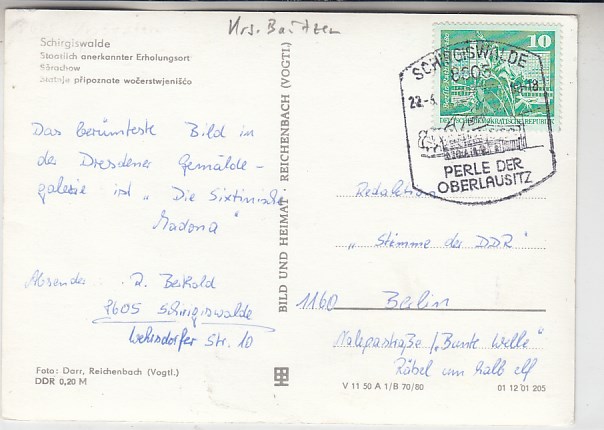 Krs. Bautzen
Schirgiswalde
Staatlich anerkannter Erholungsort
Šěrachow
statnje připoznate wočerstwjenišćo
10
DEUTSCHE DEMOKRATISCHE REPUBLIK
SCHIRGISWALDE
8605
22.-4.
-18
PERLE DER
OBERLAUSITZ
Das berümteste Bild in
der Dresdener Gemälde-
galerie ist „Die Sixtinische
Madona"
Absender: R. Berkold
8605 Schirgiswalde
Wehrsdorfer Str. 10
BILD UND HEIMAT REICHENBACH (VOGTL)
Redaktion
„Stimme der DDR"
1160 Berlin
Nalepastraße / "Bunte Welle"
Räbel um halb elf
Foto: Darr, Reichenbach (Vogtl.)
DDR 0,20 M
V 11 50 A 1/B 70/80
01 12 01 205